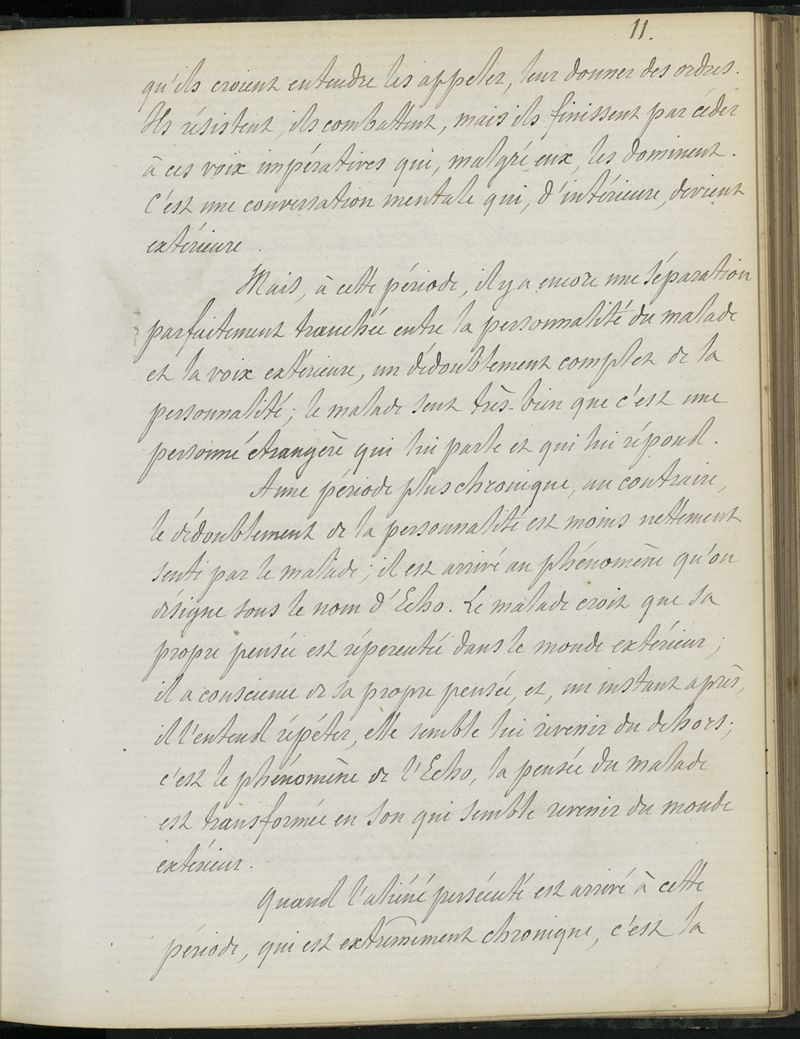 11.
qu'ils croient entendre les appeler, leur donner des ordres.
Ils résistent, ils combattent, mais ils finissent par céder
à ces voix impératives qui, malgré eux, les dominent.
C'est une conversation mentale qui, d'intérieure, devient
extérieure.
Mais, à cette période, il y a encore une séparation
parfaitement tranchée entre la personnalité du malade
et la voix extérieure, un dédoublement complet de la
personnalité; le malade sent très-bien que c'est une
personne étrangère qui lui parle et qui lui répond.
A une période plus chronique, au contraire,
le dédoublement de la personnalité est moins nettement
senti par le malade; il est arrivé au phénomène qu'on
désigne sous le nom d'Echo. Le malade croit que sa
propre pensée est répercutée dans le monde extérieur;
il a conscience de sa propre pensée, et, un instant après,
il l'entend répéter, elle semble lui revenir du dehors;
c'est le phénomène de l'Echo, la pensée du malade
est transformée en son qui semble revenir du monde
extérieur.
Quand l'aliéné persécuté est arrivé à cette
période, qui est extrêmement chronique, c'est la